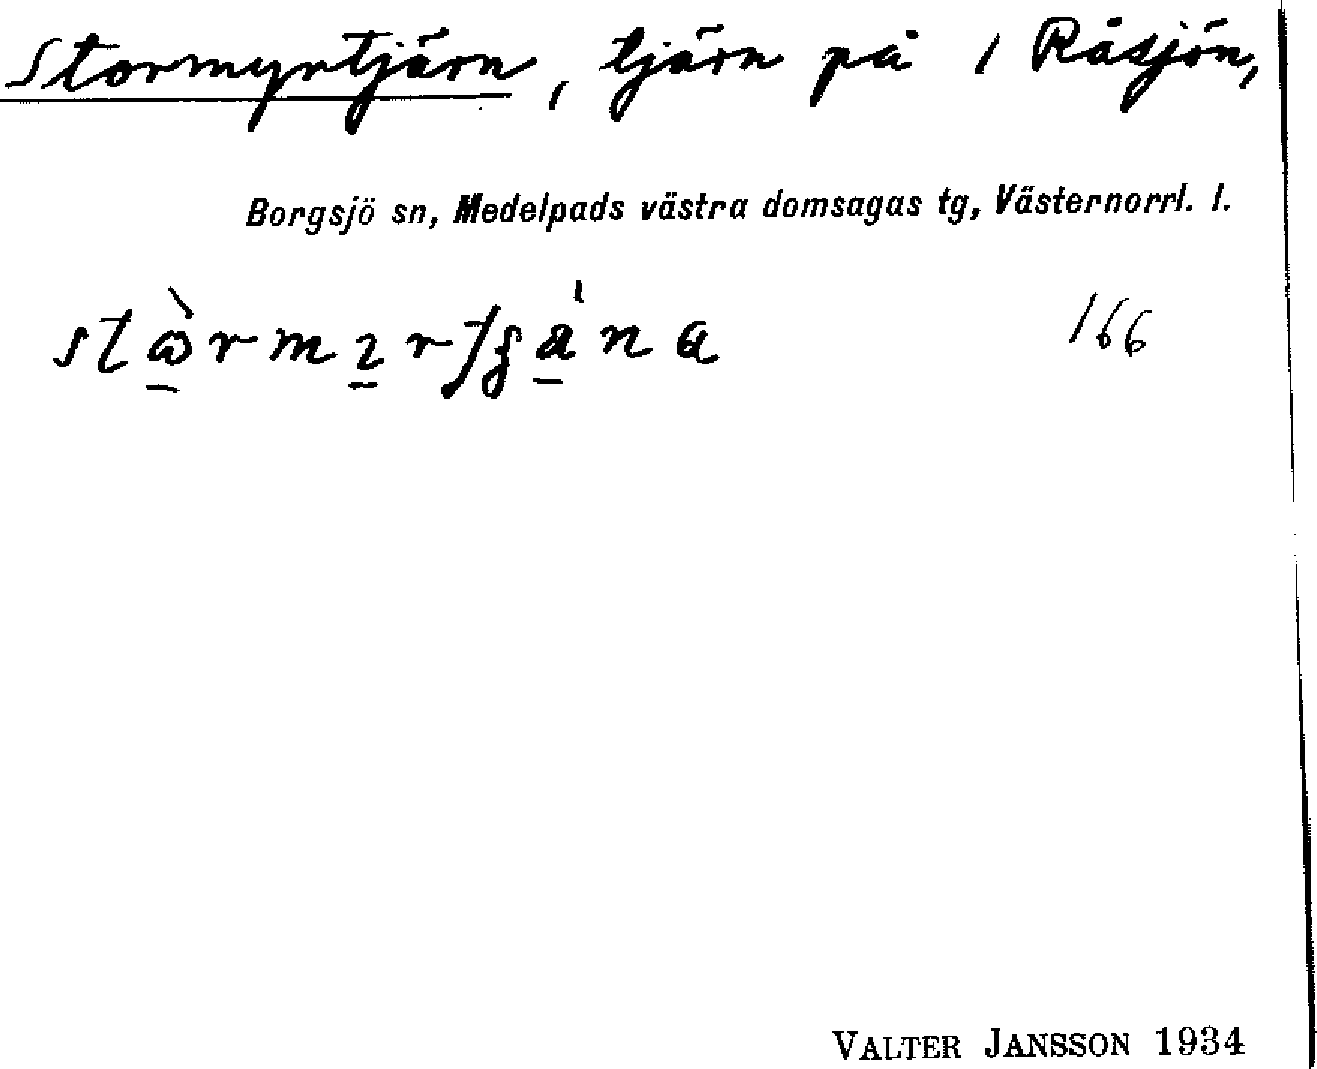 Stormyrtjärn, tjärn på 1 Råsjön,
Borgsjö sn, Medelpads västra domsagas tg, Västernorrl. l.
166
VALTER JANSSON 1934